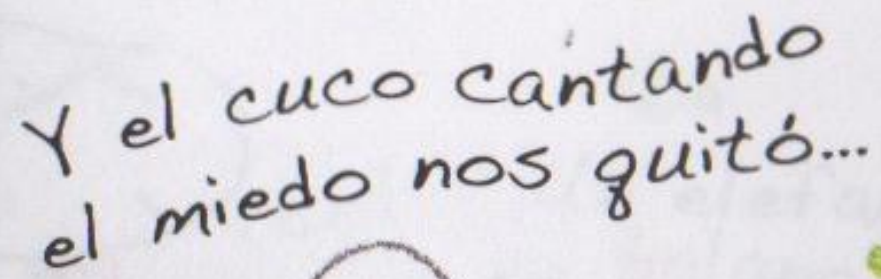 Y el cuco cantando
el miedo nos quitó...